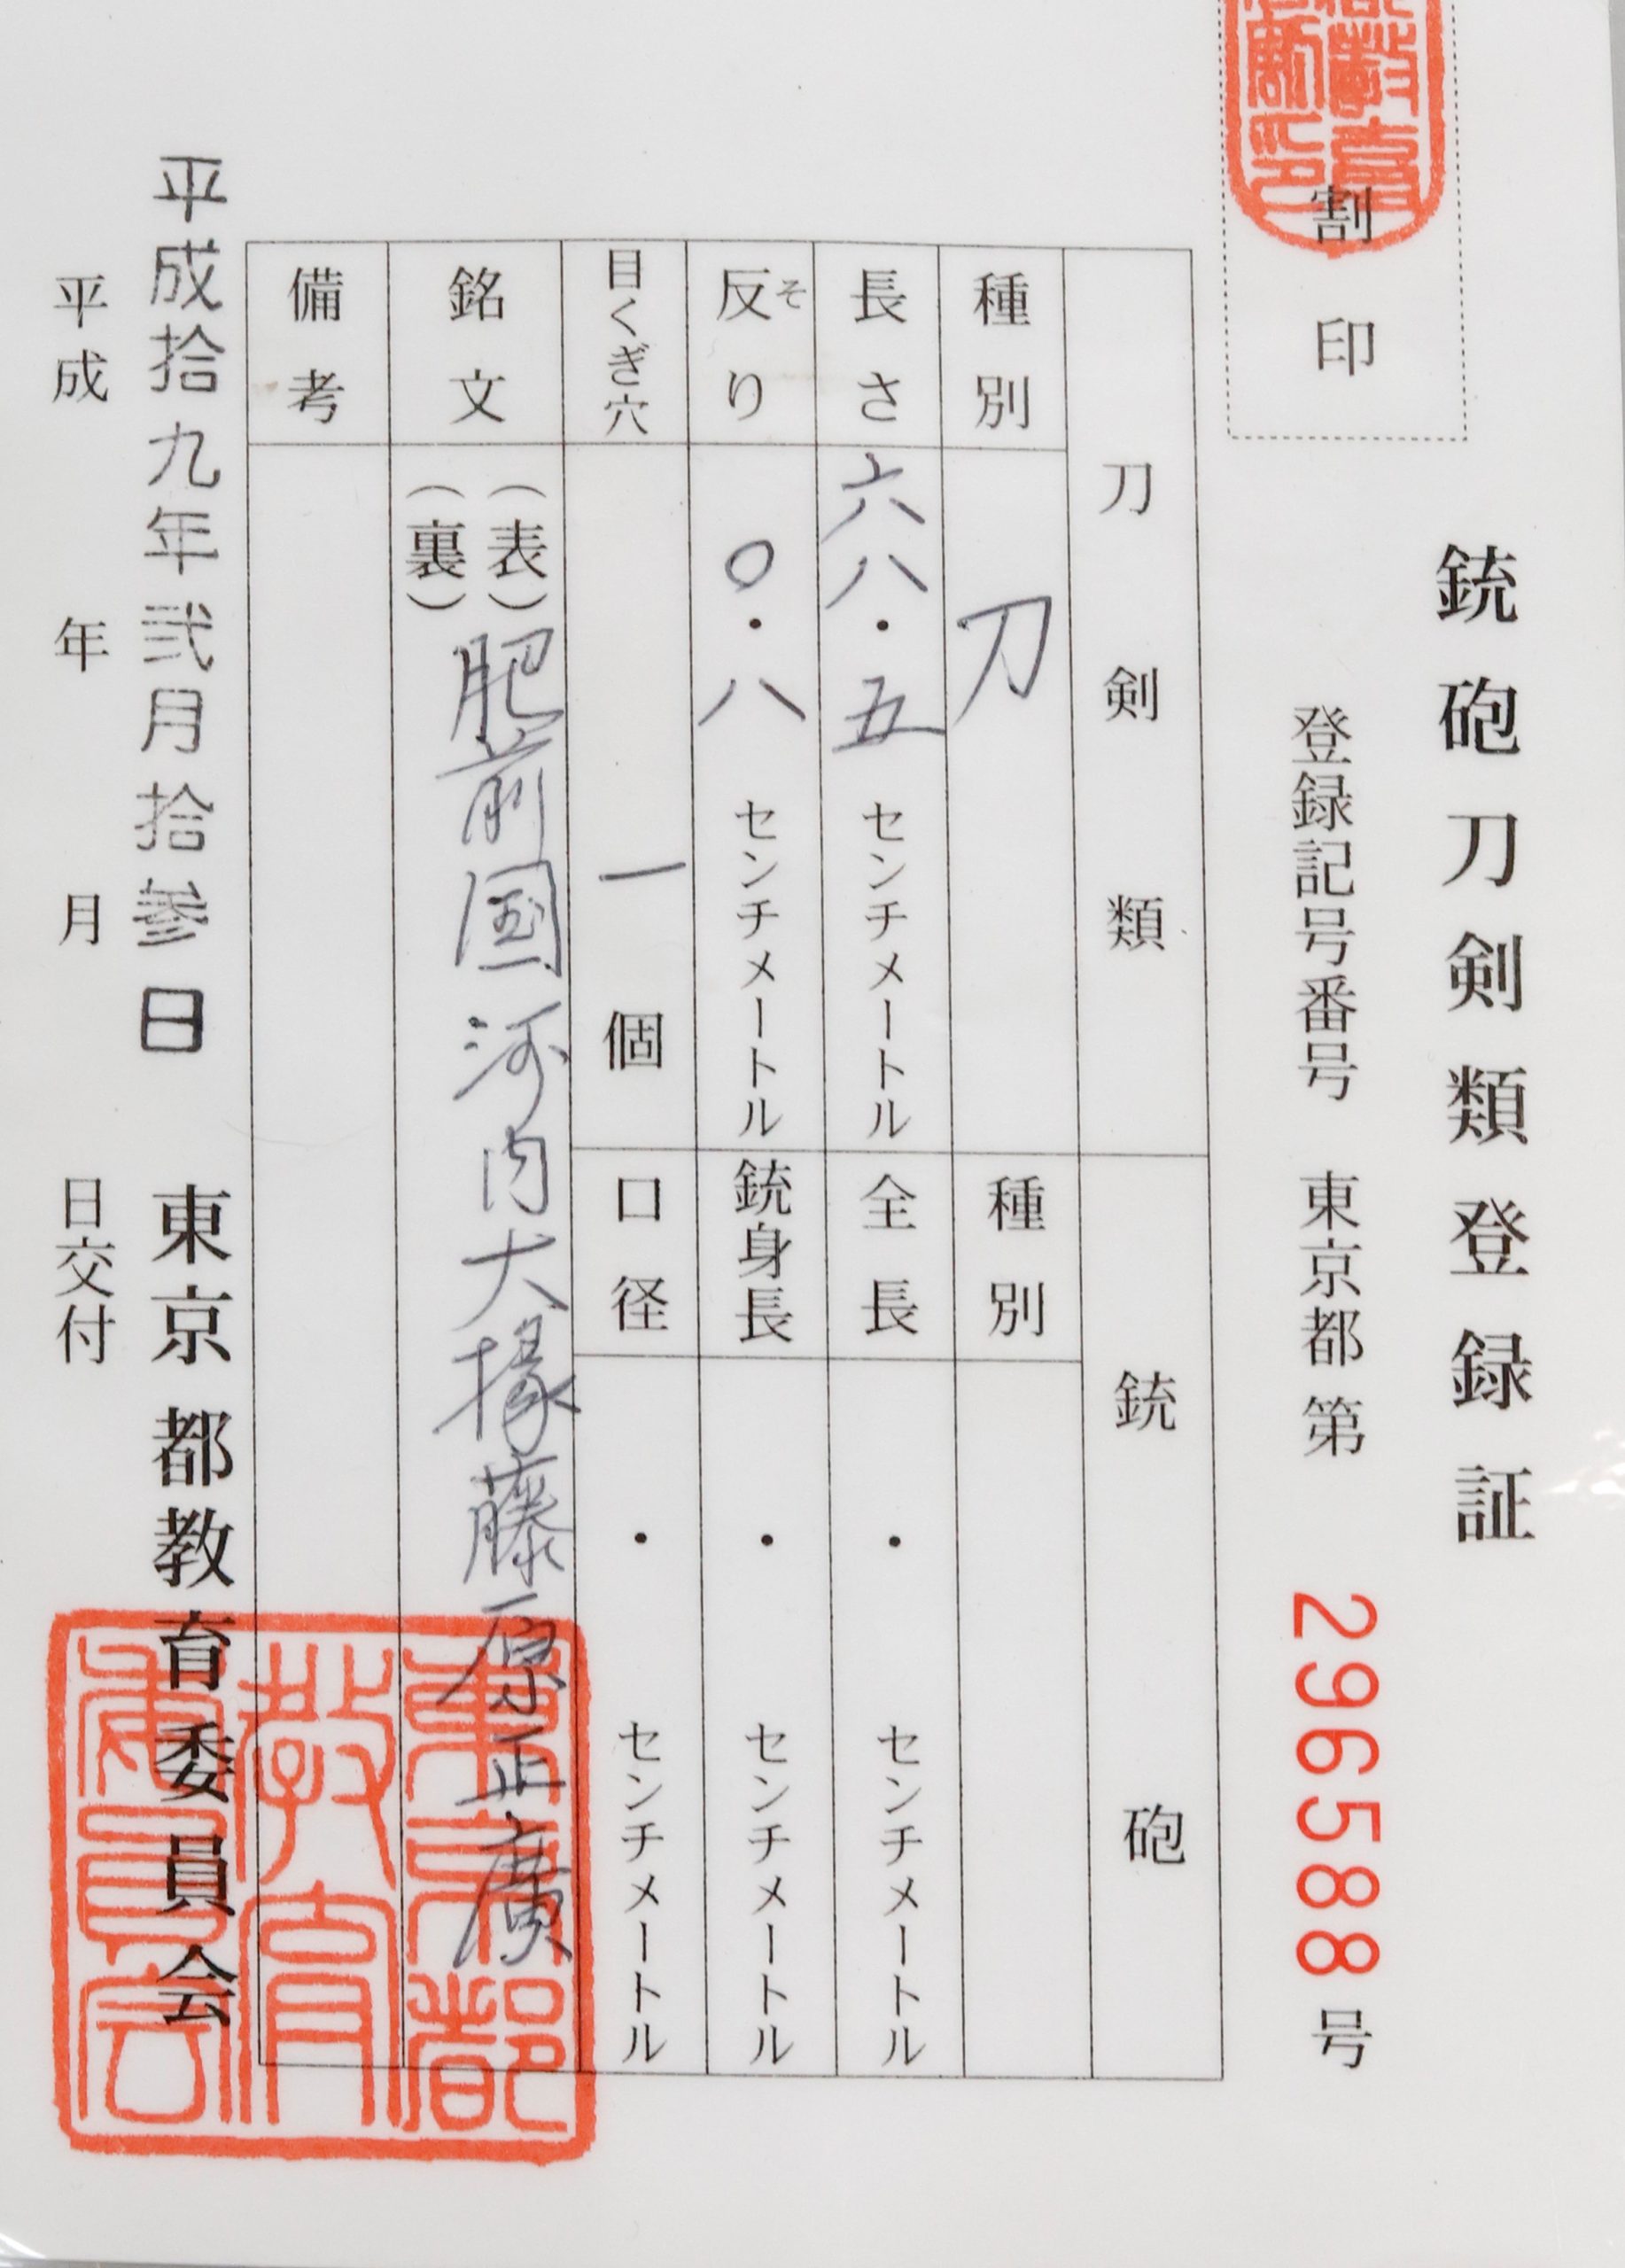 銃砲刀剣類登録証
登録記号番号 東京都 第 296588 号
割印
刀剣類
銃砲
種別 刀
種別
長さ 六八・五 センチメートル
全長 ・ センチメートル
反り 〇・八 センチメートル
そ
銃身長 ・ センチメートル
目くぎ穴 一個
口径 ・ センチメートル
銘文 (表) 肥前国河内大掾藤原正廣
(裏)
備考
平成拾九年弐月拾参日 東京都教育委員会
平成 年 月 日交付
東京都
教育
委員会